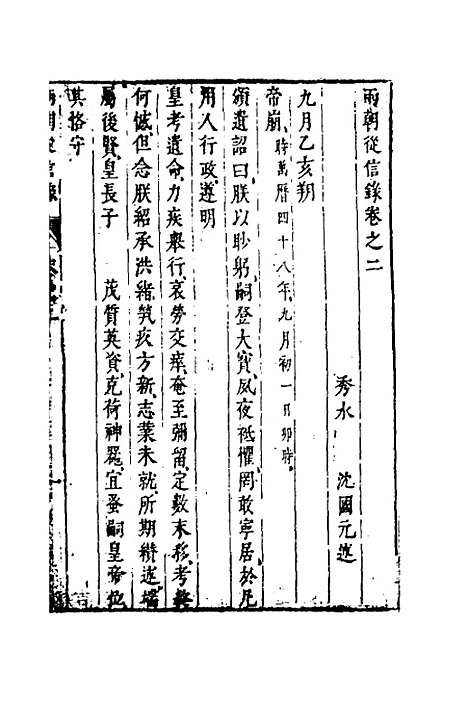 兩朝從信錄卷之二
秀水 沈國元述
九月乙亥朔
帝崩時萬曆四十八年九月初一日卯時
頒遺詔曰朕以眇躬嗣登大寶夙夜祗懼罔敢寧居於凡
用人行政遵明
皇考遺命力疾舉行哀勞交瘁奄至彌留定數末移考終
何憾但念朕紹承洪緒筑疚方新志業未就所期繼述
屬後賢皇長子 茂質英資克荷神器宜蚤嗣皇帝位
其恪守